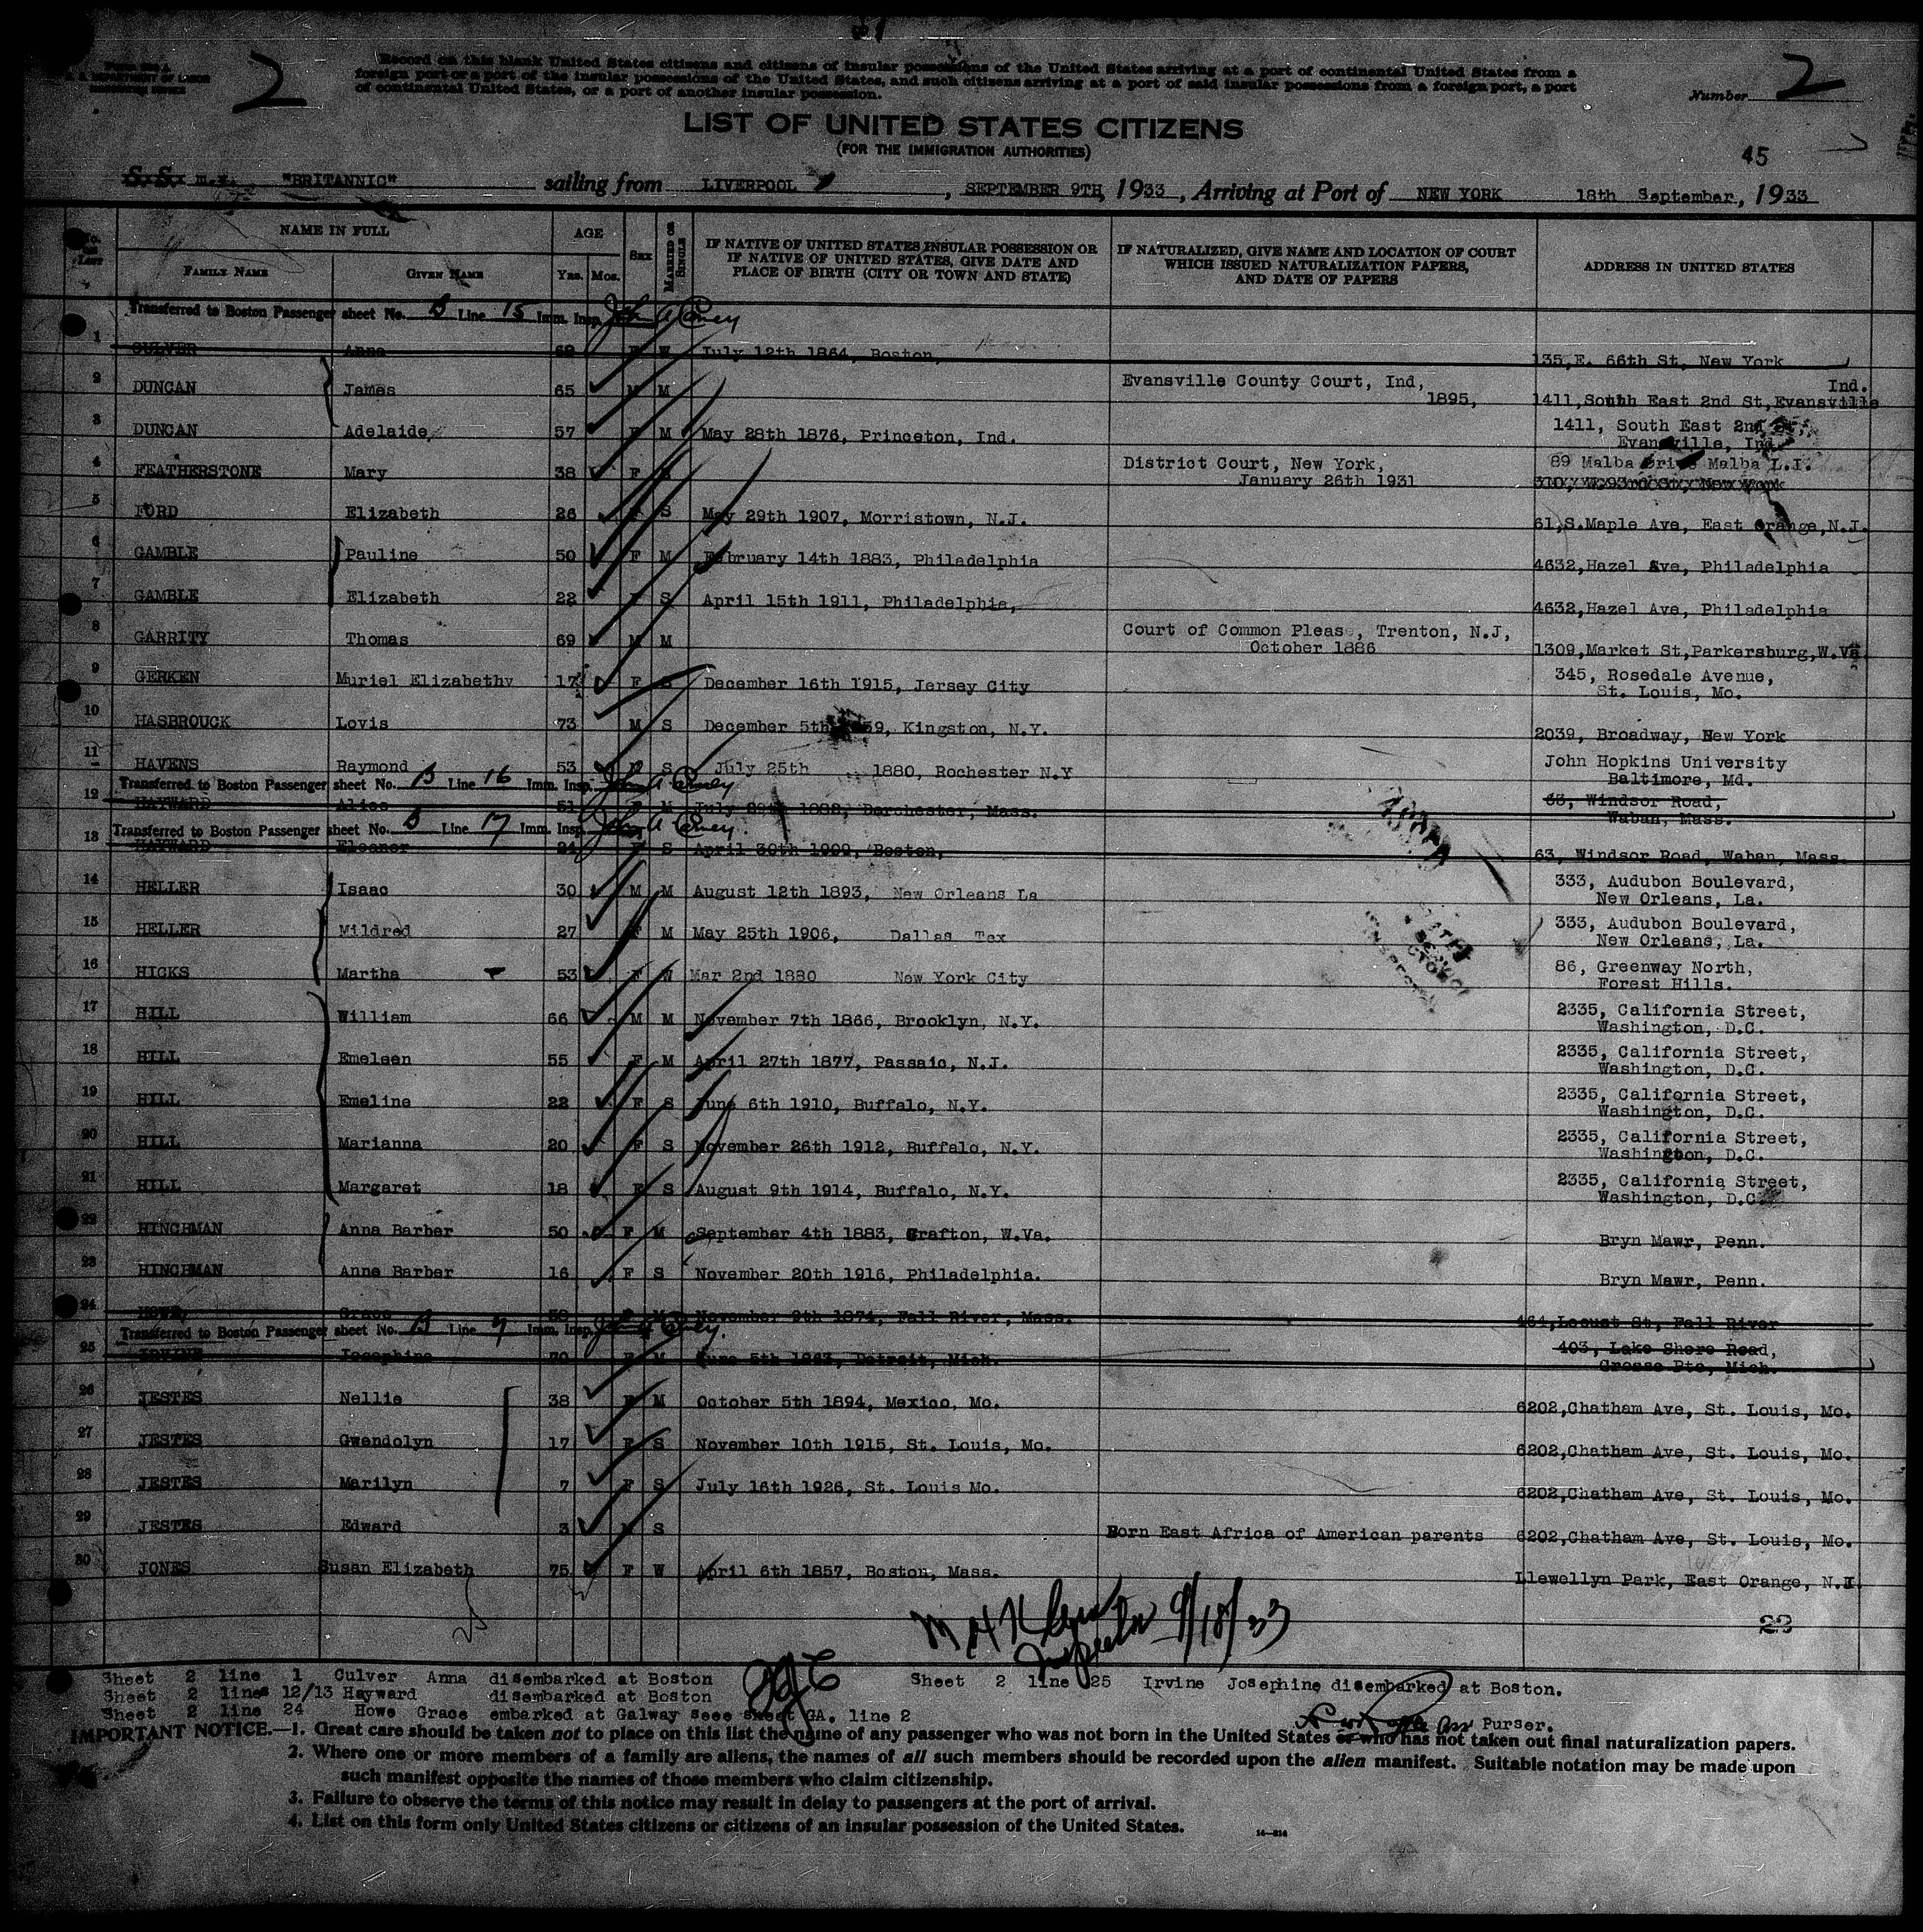 2
Record on this blank United States citizens and citizens of insular possessions of the United States arriving at a port of continental United States from a
foreign port or a port of the insular possessions of the United States, and such citizens arriving at a port of said insular possessions from a foreign port, a port
of continental United States, or a port of another insular possession.
Number 2
LIST OF UNITED STATES CITIZENS
(FOR THE IMMIGRATION AUTHORITIES)
45
S.S. m.v. "BRITANNIC" sailing from LIVERPOOL, SEPTEMBER 9TH, 1933, Arriving at Port of NEW YORK 18th September, 1933
No. on List
NAME IN FULL AGE Sex MARRIED OR SINGLE IF NATIVE OF UNITED STATES INSULAR POSSESSION OR IF NATIVE OF UNITED STATES, GIVE DATE AND PLACE OF BIRTH (CITY OR TOWN AND STATE) IF NATURALIZED, GIVE NAME AND LOCATION OF COURT WHICH ISSUED NATURALIZATION PAPERS, AND DATE OF PAPERS ADDRESS IN UNITED STATES
FAMILY NAME GIVEN NAME Yrs. Mos.
Transferred to Boston Passenger sheet No. B Line 15 Imm. Insp.
1 CULVER Anna 69 F W July 12th 1864, Boston, 135, E. 66th St, New York
2 DUNCAN James 65 M M Evansville County Court, Ind, 1895, 1411, South East 2nd St, Evansville Ind.
3 DUNCAN Adelaide, 57 F M May 28th 1876, Princeton, Ind. 1411, South East 2nd St, Evansville, Ind.
4 FEATHERSTONE Mary 38 F S District Court, New York, January 26th 1931 89 Malba Drive Malba L.I.
5 FORD Elizabeth 26 F S May 29th 1907, Morristown, N.J. 61, S. Maple Ave, East Orange, N.J.
6 GAMBLE Pauline 50 F M February 14th 1883, Philadelphia 4632, Hazel Ave, Philadelphia
7 GAMBLE Elizabeth 22 F S April 15th 1911, Philadelphia, 4632, Hazel Ave, Philadelphia
8 GARRITY Thomas 69 M M Court of Common Pleas, Trenton, N.J, October 1886 1309, Market St, Parkersburg, W.Va
9 GERKEN Muriel Elizabethv 17 F S December 16th 1915, Jersey City 345, Rosedale Avenue, St. Louis, Mo.
10 HASBROUCK Lovis 73 M S December 5th 59, Kingston, N.Y. 2039, Broadway, New York
11 HAVENS Raymond 53 M S July 25th 1880, Rochester N.Y John Hopkins University Baltimore, Md.
Transferred to Boston Passenger sheet No. B Line 16 Imm. Insp.
12 HAYWARD Alice 51 F M July 1882, Dorchester, Mass. 63, Windsor Road, Waban, Mass.
Transferred to Boston Passenger sheet No. B Line 17 Imm. Insp.
13 HAYWARD Eleanor 24 F S April 30th 1909, Boston, 63, Windsor Road, Waban, Mass.
14 HELLER Isaac 30 M M August 12th 1893, New Orleans La 333, Audubon Boulevard, New Orleans, La.
15 HELLER Mildred 27 F M May 25th 1906, Dallas Tex 333, Audubon Boulevard, New Orleans, La.
16 HICKS Martha 53 F W Mar 2nd 1880 New York City 86, Greenway North, Forest Hills.
17 HILL William 66 M M November 7th 1866, Brooklyn, N.Y. 2335, California Street, Washington, D.C.
18 HILL Emeleen 55 F M April 27th 1877, Passaic, N.J. 2335, California Street, Washington, D.C.
19 HILL Emeline 22 F S June 6th 1910, Buffalo, N.Y. 2335, California Street, Washington, D.C.
20 HILL Marianna 20 F S November 26th 1912, Buffalo, N.Y. 2335, California Street, Washington, D.C.
21 HILL Margaret 18 F S August 9th 1914, Buffalo, N.Y. 2335, California Street, Washington, D.C.
22 HINCHMAN Anna Barber 50 F M September 4th 1883, Grafton, W.Va. Bryn Mawr, Penn.
23 HINCHMAN Anne Barber 16 F S November 20th 1916, Philadelphia. Bryn Mawr, Penn.
24 HOWE, Grace 58 F M November 9th 1874, Fall River, Mass. 464, Locust St, Fall River
Transferred to Boston Passenger sheet No. B Line 9 Imm. Insp.
25 IRVINE Josephine 70 F M June 5th 1863, Detroit, Mich. 403, Lake Shore Road, Grosse Pte, Mich.
26 JESTES Nellie 38 F M October 5th 1894, Mexico, Mo. 6202, Chatham Ave, St. Louis, Mo.
27 JESTES Gwendolyn 17 F S November 10th 1915, St. Louis, Mo. 6202, Chatham Ave, St. Louis, Mo.
28 JESTES Marilyn 7 F S July 16th 1926, St. Louis Mo. 6202, Chatham Ave, St. Louis, Mo.
29 JESTES Edward 3 M S Born East Africa of American parents 6202, Chatham Ave, St. Louis, Mo.
30 JONES Susan Elizabeth 75 F W April 6th 1857, Boston, Mass. Llewellyn Park, East Orange, N.J.
25
Inspector 9/18/33
23
Sheet 2 line 1 Culver Anna disembarked at Boston Sheet 2 line 25 Irvine Josephine disembarked at Boston.
Sheet 2 lines 12/13 Hayward disembarked at Boston
Sheet 2 line 24 Howe Grace embarked at Galway seee sheet GA. line 2
Purser.
IMPORTANT NOTICE.—1. Great care should be taken not to place on this list the name of any passenger who was not born in the United States or who has not taken out final naturalization papers.
2. Where one or more members of a family are aliens, the names of all such members should be recorded upon the alien manifest. Suitable notation may be made upon
such manifest opposite the names of those members who claim citizenship.
3. Failure to observe the terms of this notice may result in delay to passengers at the port of arrival.
4. List on this form only United States citizens or citizens of an insular possession of the United States.